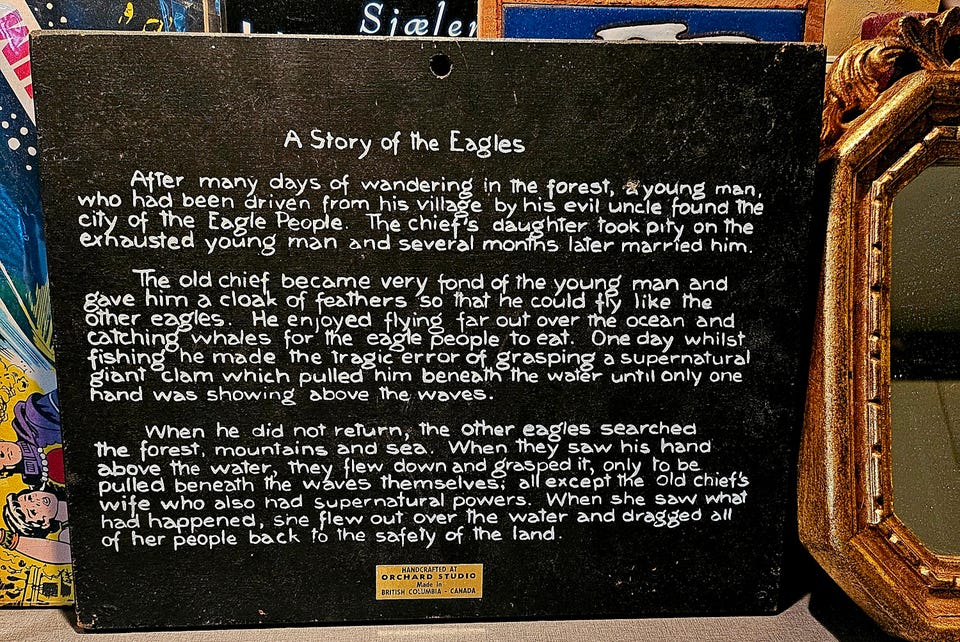 Sjæler
A Story of the Eagles
After many days of wandering in the forest, a young man,
who had been driven from his village by his evil uncle found the
city of the Eagle People. The chief's daughter took pity on the
exhausted young man and several months later married him.
The old chief became very fond of the young man and
gave him a cloak of feathers so that he could fly like the
other eagles. He enjoyed flying far out over the ocean and
catching whales for the eagle people to eat. One day whilst
fishing he made the tragic error of grasping a supernatural
giant clam which pulled him beneath the water until only one
hand was showing above the waves.
When he did not return, the other eagles searched
the forest, mountains and sea. When they saw his hand
above the water, they flew down and grasped it, only to be
pulled beneath the waves themselves; all except the old chief's
wife who also had supernatural powers. When she saw what
had happened, she flew out over the water and dragged all
of her people back to the safety of the land.
HANDCRAFTED AT
ORCHARD STUDIO
Made in
BRITISH COLUMBIA - CANADA